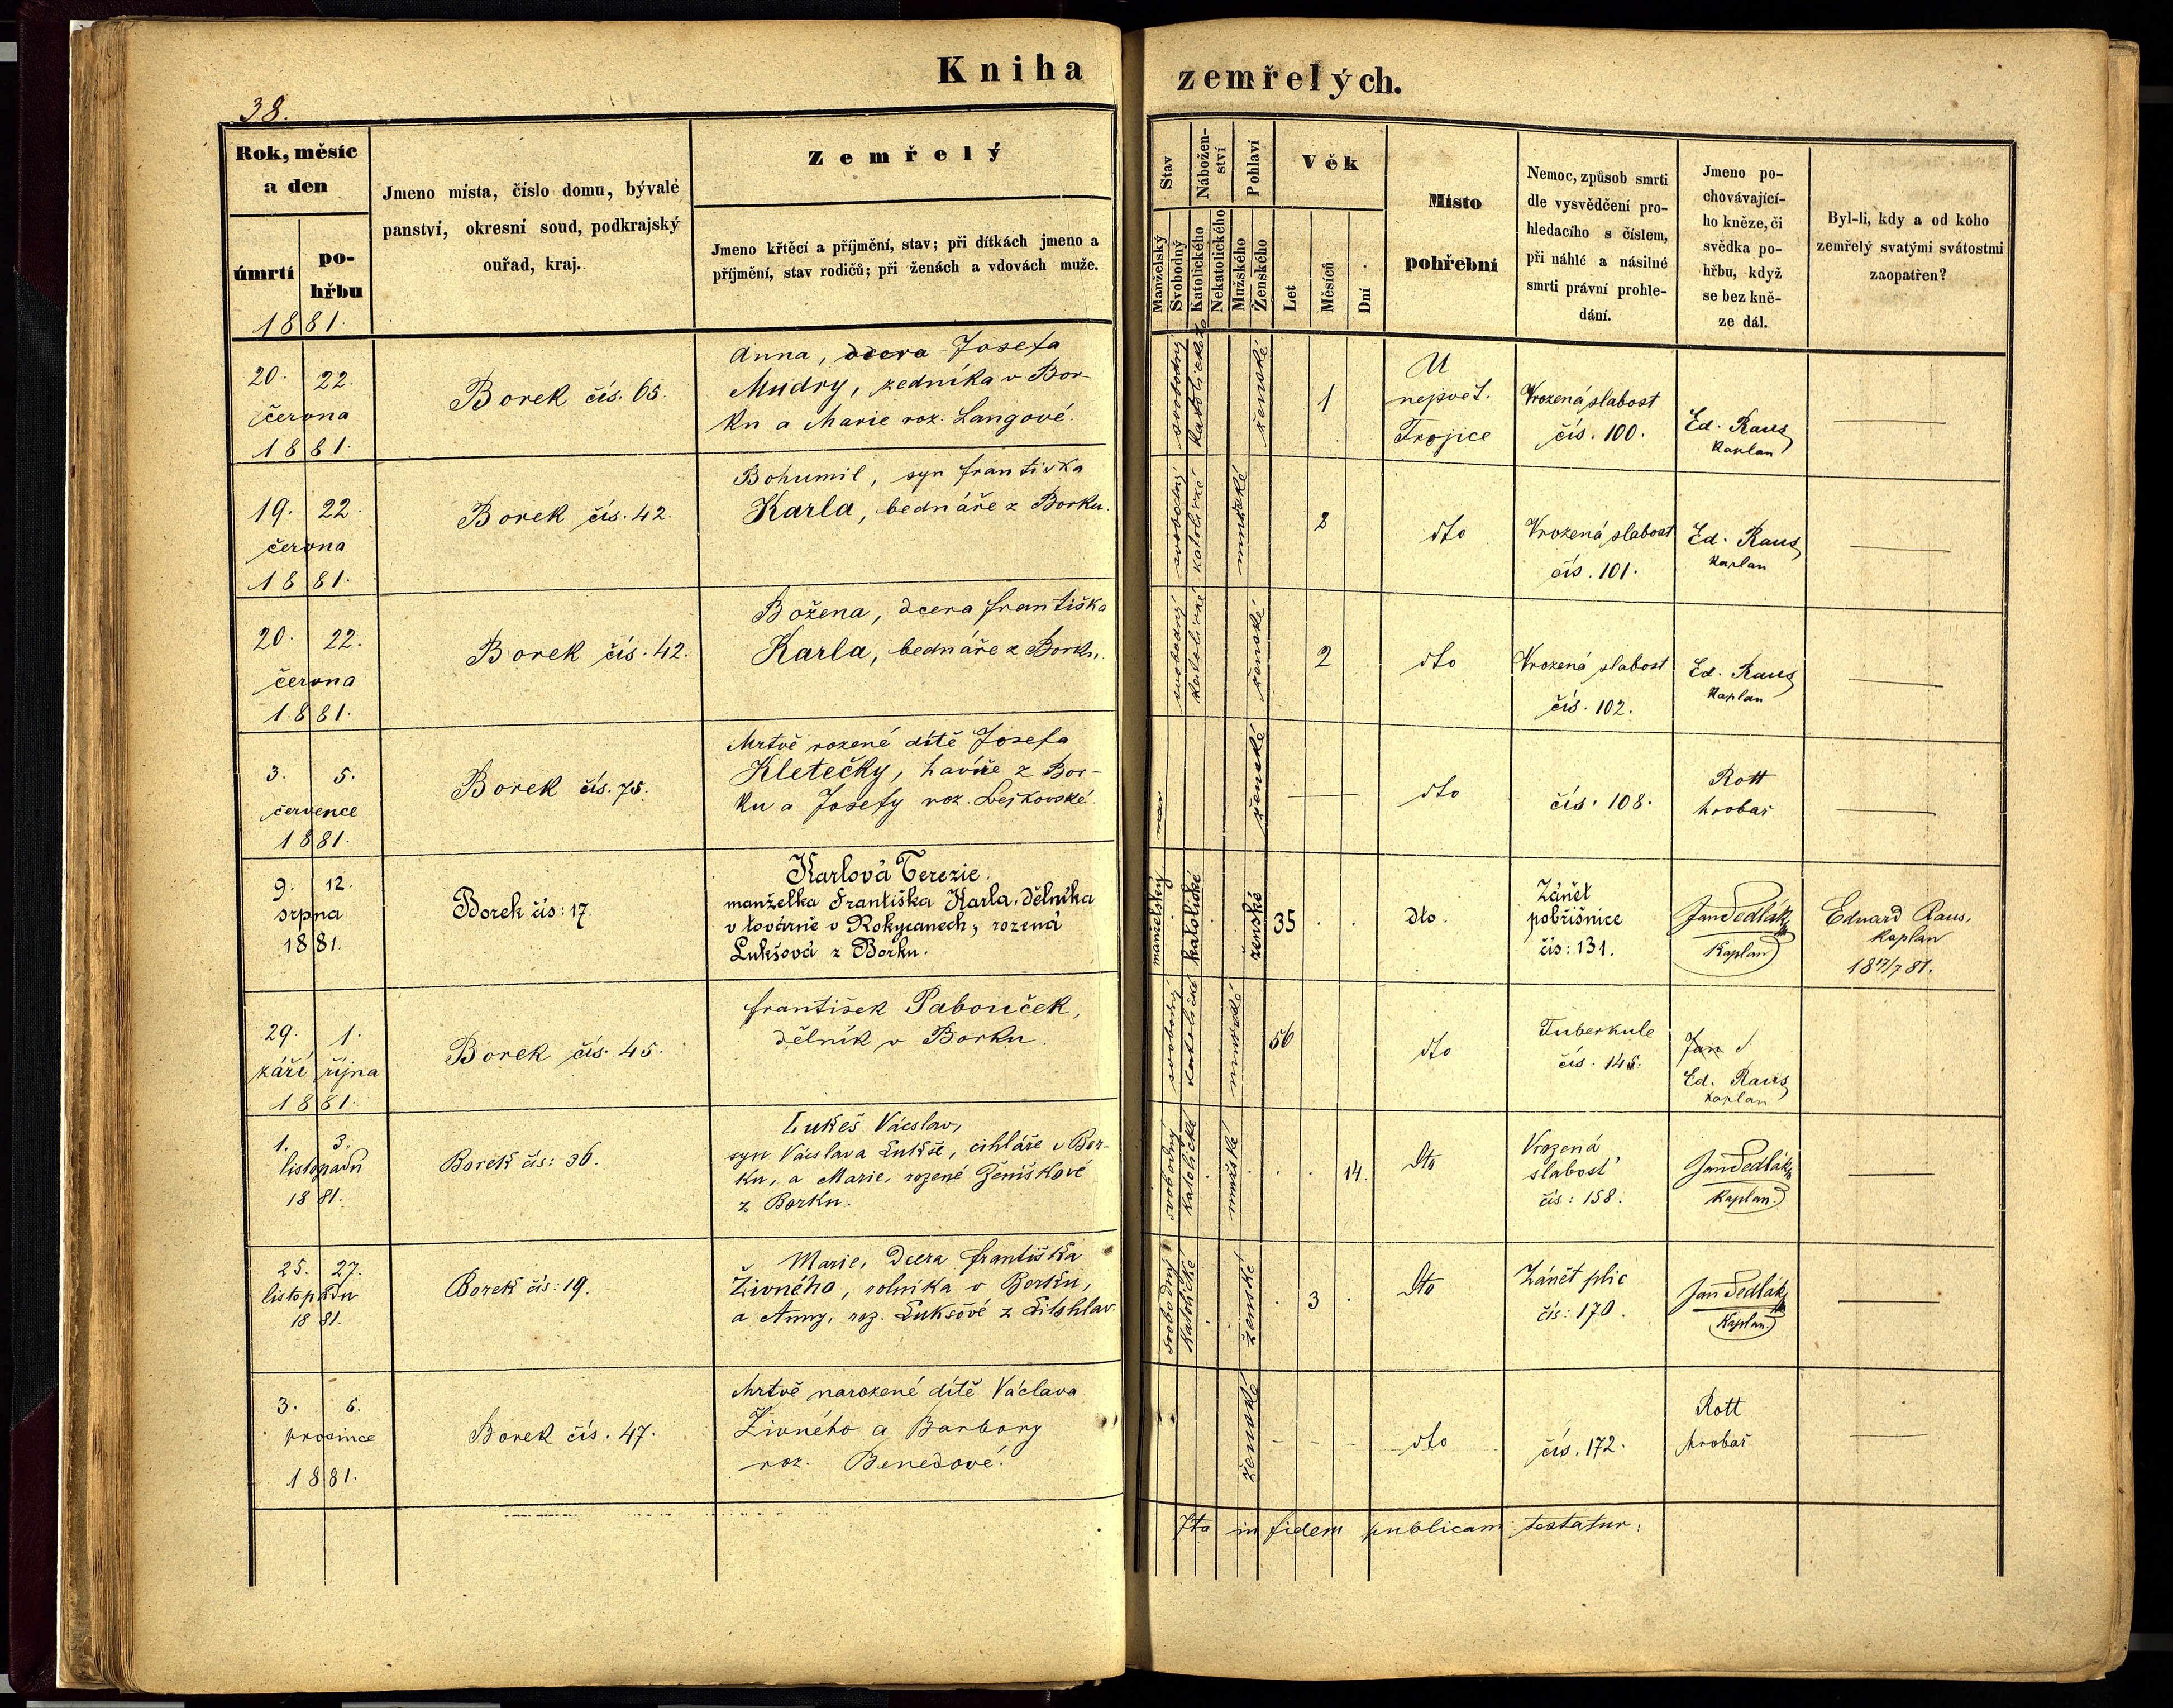 Kniha zemřelých.
38.
Rok, měsíc a den
úmrtí
pohřbu
1881.
Jmeno místa, číslo domu, bývalé
panství, okresní soud, podkrajský
ouřad, kraj.
Zemřelý
Jmeno křtěcí a příjmění, stav; při dítkách jmeno a
příjmění, stav rodičů; při ženách a vdovách muže.
Stav
Manželský
Svobodný
Nábožen-
ství
Katolického
Nekatolického
Pohlaví
Mužského
Ženského
Věk
Let
Měsíců
Dní
Místo
pohřební
Nemoc, způsob smrti
dle vysvědčení pro-
hledacího s číslem,
při náhlé a násilné
smrti právní prohle-
dání.
Jmeno po-
chovávající-
ho kněze, či
svědka po-
hřbu, když
se bez kně-
ze dál.
Byl-li, kdy a od koho
zemřelý svatými svátostmi
zaopatřen?
20. 22.
června
1881.
Borek čís. 65.
Anna, dcera Josefa
Mudry, zedníka v Bor-
ku a Marie roz. Langové.
svobodný
ženské
1
U
nejsvět.
Trojice
Vrozená slabost
čís. 100.
Ed. Raus
kaplan
19. 22.
června
1881.
Borek čís. 42.
Bohumil, syn Františka
Karla, bednáře z Borku.
svobodný
katolické
mužské
2
dto
Vrozená slabost
čís. 101.
Ed. Raus
kaplan
20. 22.
června
1881.
Borek čís. 42.
Božena, dcera Františka
Karla, bednáře z Borku.
svobodný
katolické
ženské
2
dto
Vrozená slabost
čís. 102.
Ed. Raus
kaplan
3. 5.
července
1881.
Borek čís. 75.
Mrtvě rozené dítě Josefa
Kletečky, havíře z Bor-
ku a Josefy roz. Lejkovské.
ženské
dto
čís. 108.
Rott
hrobař
9. 12.
srpna
1881.
Borek čís: 17.
Karlová Terezie.
manželka Františka Karla, dělníka
v továrně v Rokycanech, rozená
Lukšová z Borku.
manželský
katolické
ženské
35
dto.
Zánět
pobřišnice
čís: 131.
Jan Sedlák
kaplan
Eduard Raus,
kaplan
18 17/7 81.
29. 1.
září října
1881.
Borek čís. 45.
František Pabouček,
dělník v Borku.
svobodný
katolické
mužské
56
dto
Tuberkule
čís. 145.
Jan S
Ed. Raus
kaplan
1. 3.
listopadu
1881.
Borek čís: 36.
Lukeš Václav,
syn Václava Lukše, cihláře v Bor-
ku, a Marie, rozené Ženíškové
z Borku.
svobodný
katolické
mužské
14.
dto
Vrozená
slabost
čís: 158.
Jan Sedlák
kaplan.
25. 27.
listopadu
1881.
Borek čís: 19.
Marie, dcera Františka
Živného, rolníka v Borku,
a Anny, roz. Lukšové z Litohlav
svobodný
katolické
ženské
3
dto
Zánět plic
čís: 170.
Jan Sedlák
kaplan.
3. 5.
prosince
1881.
Borek čís. 47.
Mrtvě narozené dítě Václava
Živného a Barbory
roz. Benedové.
ženské
dto
čís. 172.
Rott
hrobař
Ita in fidem publicam testatur: